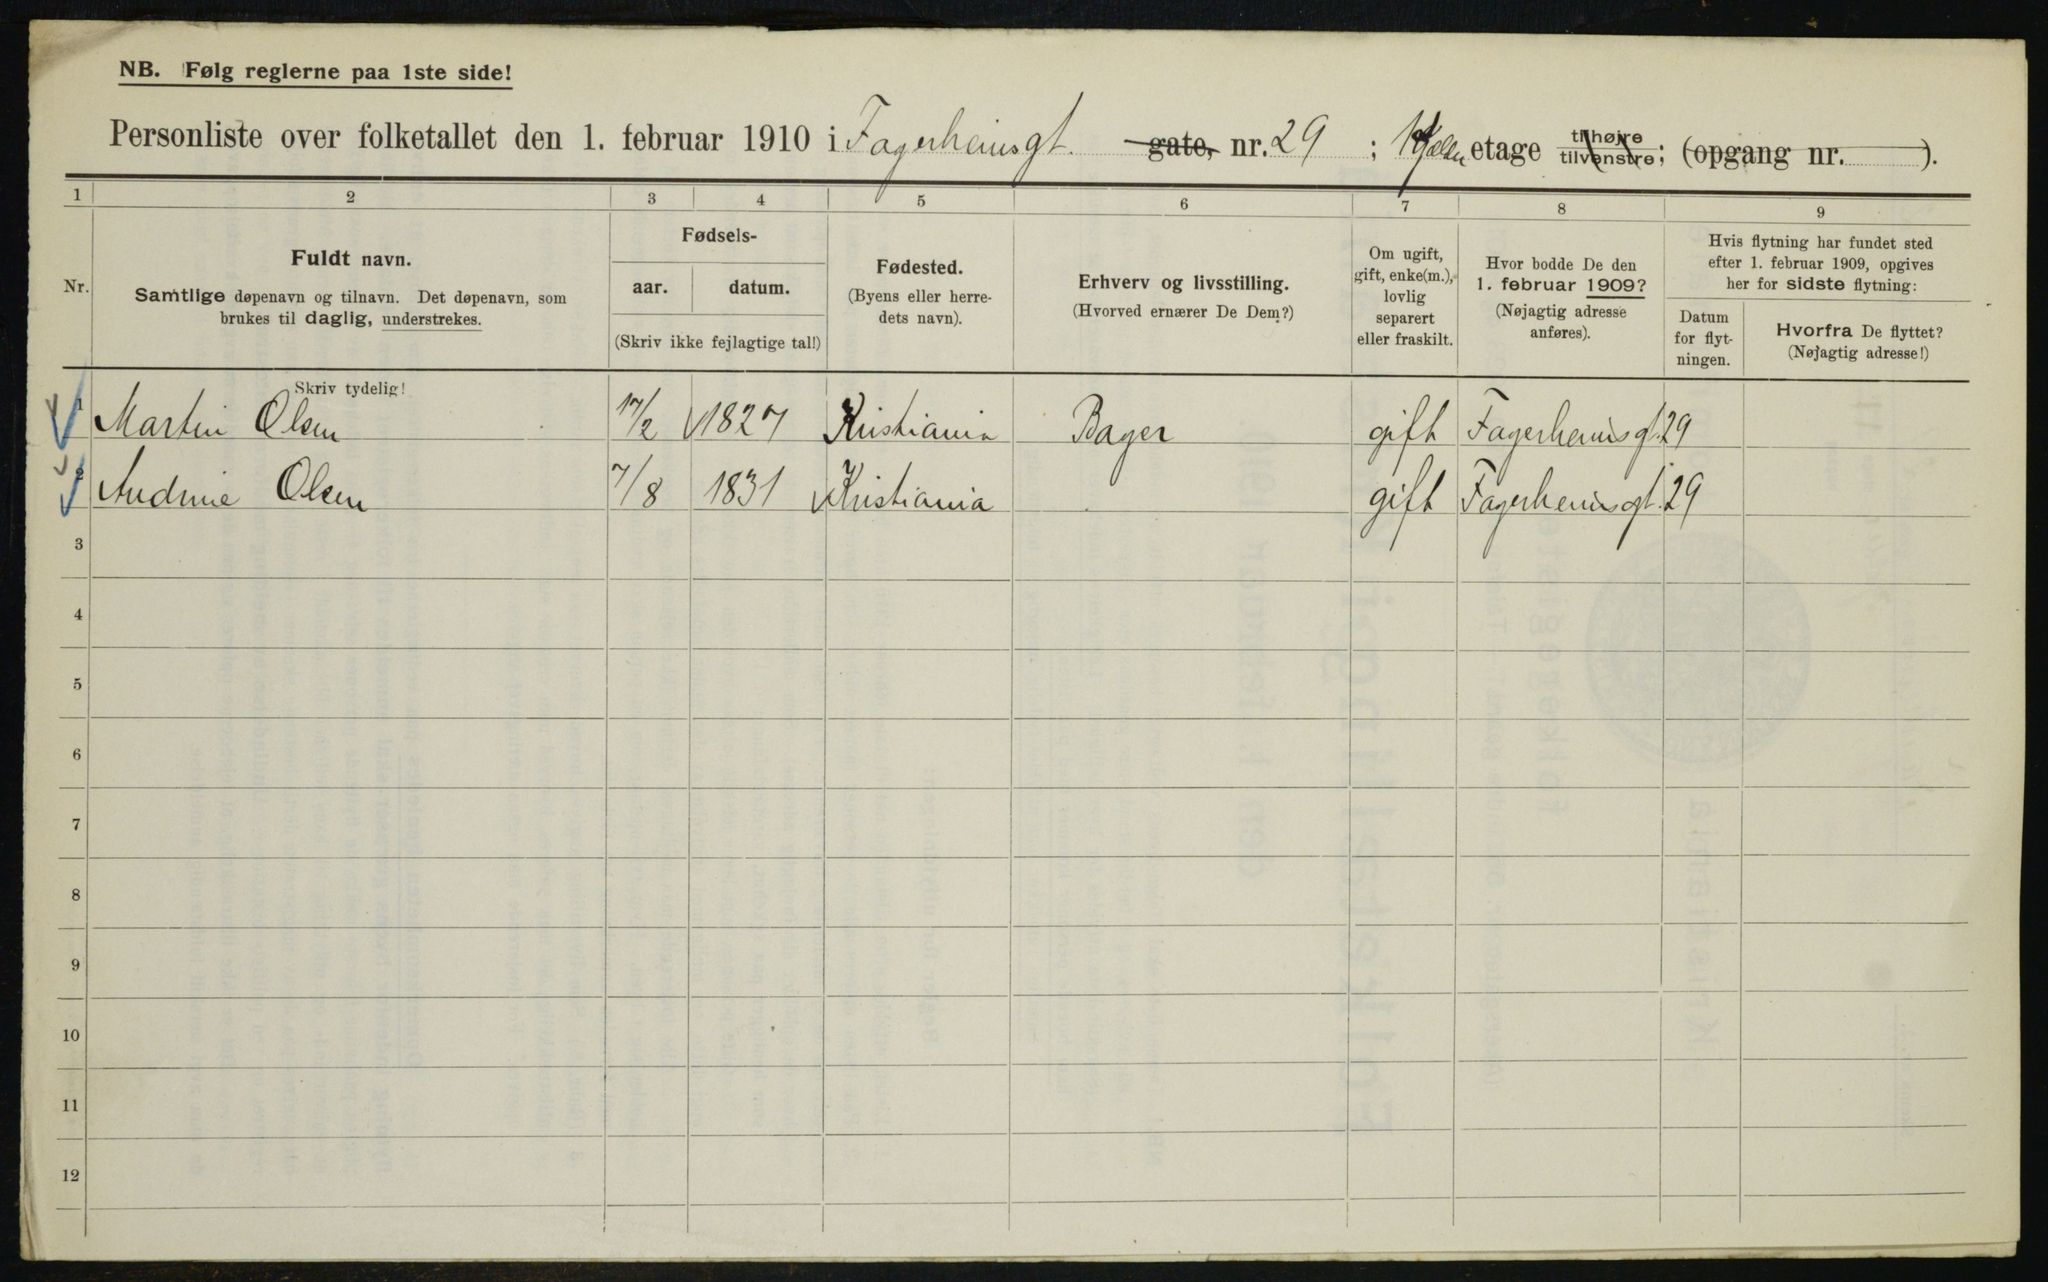 NB. Følg reglerne paa 1ste side!
Personliste over folketallet den 1. februar 1910 i Fagerheimsgt. gate, nr. 29 ; etage tilhøjre tilvenstre; (opgang nr. ).
1 2 3 4 5 6 7 8 9
Nr.
Fuldt navn.
Samtlige døpenavn og tilnavn. Det døpenavn, som
brukes til daglig, understrekes.
Fødsels-
aar. datum.
(Skriv ikke fejlagtige tal!)
Fødested.
(Byens eller herre-
dets navn).
Erhverv og livsstilling.
(Hvorved ernærer De Dem?)
Om ugift,
gift, enke(m.),
lovlig
separert
eller fraskilt.
Hvor bodde De den
1. februar 1909?
(Nøjagtig adresse
anføres).
Hvis flytning har fundet sted
efter 1. februar 1909, opgives
her for sidste flytning:
Datum
for flyt-
ningen.
Hvorfra De flyttet?
(Nøjagtig adresse!)
Skriv tydelig!
1 Martin Olsen 17/2 1827 Kristiania Bager gift Fagerheimsgt. 29
2 Andrine Olsen 7/8 1831 Kristiania gift Fagerheimsgt. 29
3
4
5
6
7
8
9
10
11
12